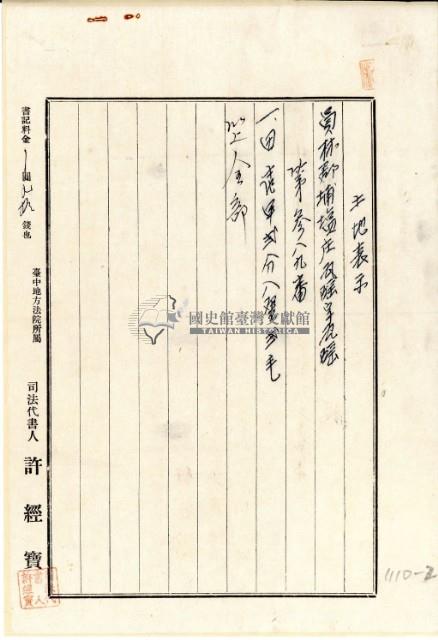 土地表示
員林郡埔塩庄瓦磘字瓦磘
第参八九番
一、田 壱甲弐分八厘弐毛
以上全部
書記料金 圓 錢也
臺中地方法院所屬
司法代書人 許經寶
國史館臺灣文獻館
TAIWAN HISTORICA
1110-2